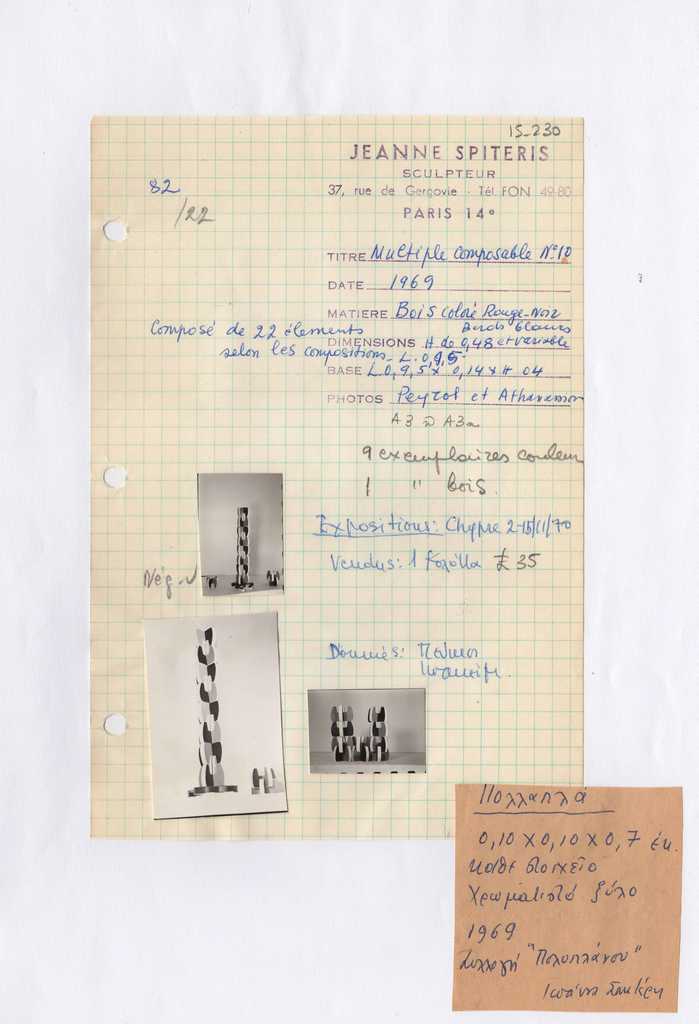 15-230
JEANNE SPITERIS
SCULPTEUR
37, rue de Gergovie - Tél. FON 49-80
PARIS 14°
82
/22
TITRE Multiple Composable N°10
DATE 1969
MATIERE Bois coloré Rouge-Noir
Bords blancs
Composé de 22 élements
selon les compositions - L. 0,9,5
DIMENSIONS H de 0,48 et variable
BASE L.0,9,5 x 0,14 x H 04
PHOTOS Peyrot et
A3 A3a
9 exemplaires couleur
1 " bois.
Expositions: Chypre 2-15/11/70
Vendus: 1 £ 35
Nég.
Donnés:
Πολλαπλά
0,10 x 0,10 x 0,7 ἑκ.
κάθε στοιχεῖο
Χρωματιστό ξύλο
1969
Συλλογή "Πολυπλάνου"
Ιωάννα